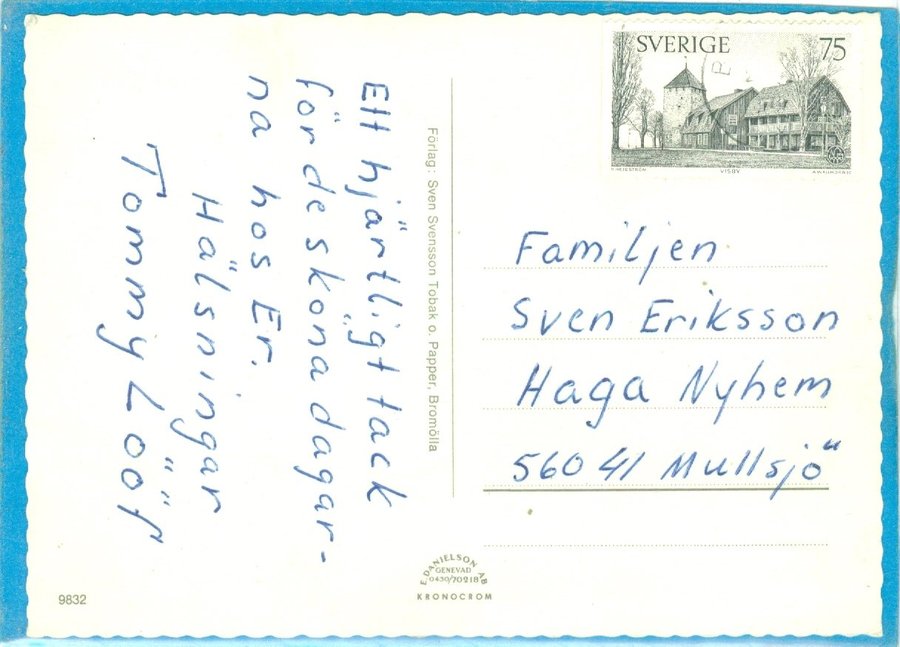 Ett hjärtligt tack
för de sköna dagar-
na hos Er.
Hälsningar
Tommy Lööf
Förlag: Sven Svensson Tobak o. Papper, Bromölla
SVERIGE 75
VISBY
Familjen
Sven Eriksson
Haga Nyhem
560 41 Mullsjö
E. DANIELSON AB
GENEVAD
0430/70218
KRONOCROM
9832